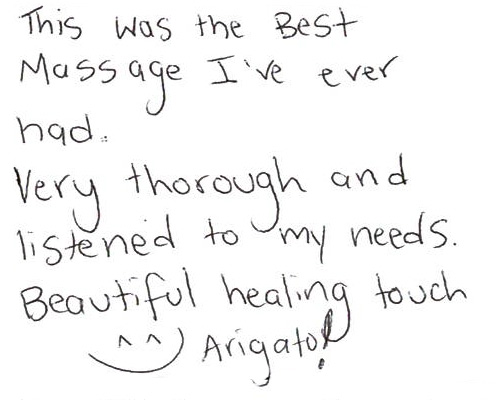 This was the Best
Massage I've ever
had.
Very thorough and
listened to my needs.
Beautiful healing touch
^^ Arigato!